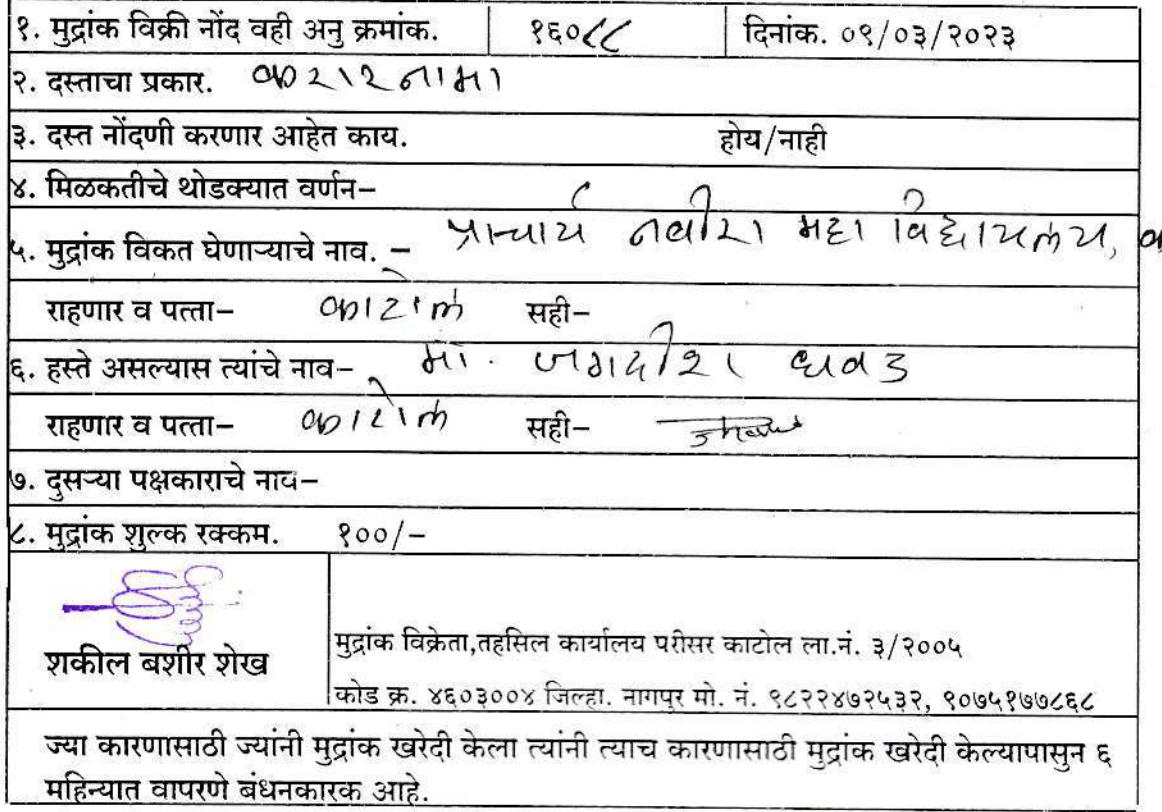 १. मुद्रांक विक्री नोंद वही अनु क्रमांक. १६०८८ दिनांक. ०९/०३/२०२३
२. दस्ताचा प्रकार. करारनामा
३. दस्त नोंदणी करणार आहेत काय. होय/नाही
४. मिळकतीचे थोडक्यात वर्णन–
५. मुद्रांक विकत घेणाऱ्याचे नाव. – प्राचार्य नबीरा महाविद्यायलय,
राहणार व पत्ता– काटोल सही–
६. हस्ते असल्यास त्यांचे नाव– मा. जगदीश धवड
राहणार व पत्ता– काटोल सही–
७. दुसऱ्या पक्षकाराचे नाव–
८. मुद्रांक शुल्क रक्कम. १००/–
शकील बशीर शेख
मुद्रांक विक्रेता,तहसिल कार्यालय परीसर काटोल ला.नं. ३/२००५
कोड क्र. ४६०३००४ जिल्हा. नागपुर मो. नं. ९८२२४७२५३२, ९०७५१७७८६८
ज्या कारणासाठी ज्यांनी मुद्रांक खरेदी केला त्यांनी त्याच कारणासाठी मुद्रांक खरेदी केल्यापासुन ६
महिन्यात वापरणे बंधनकारक आहे.